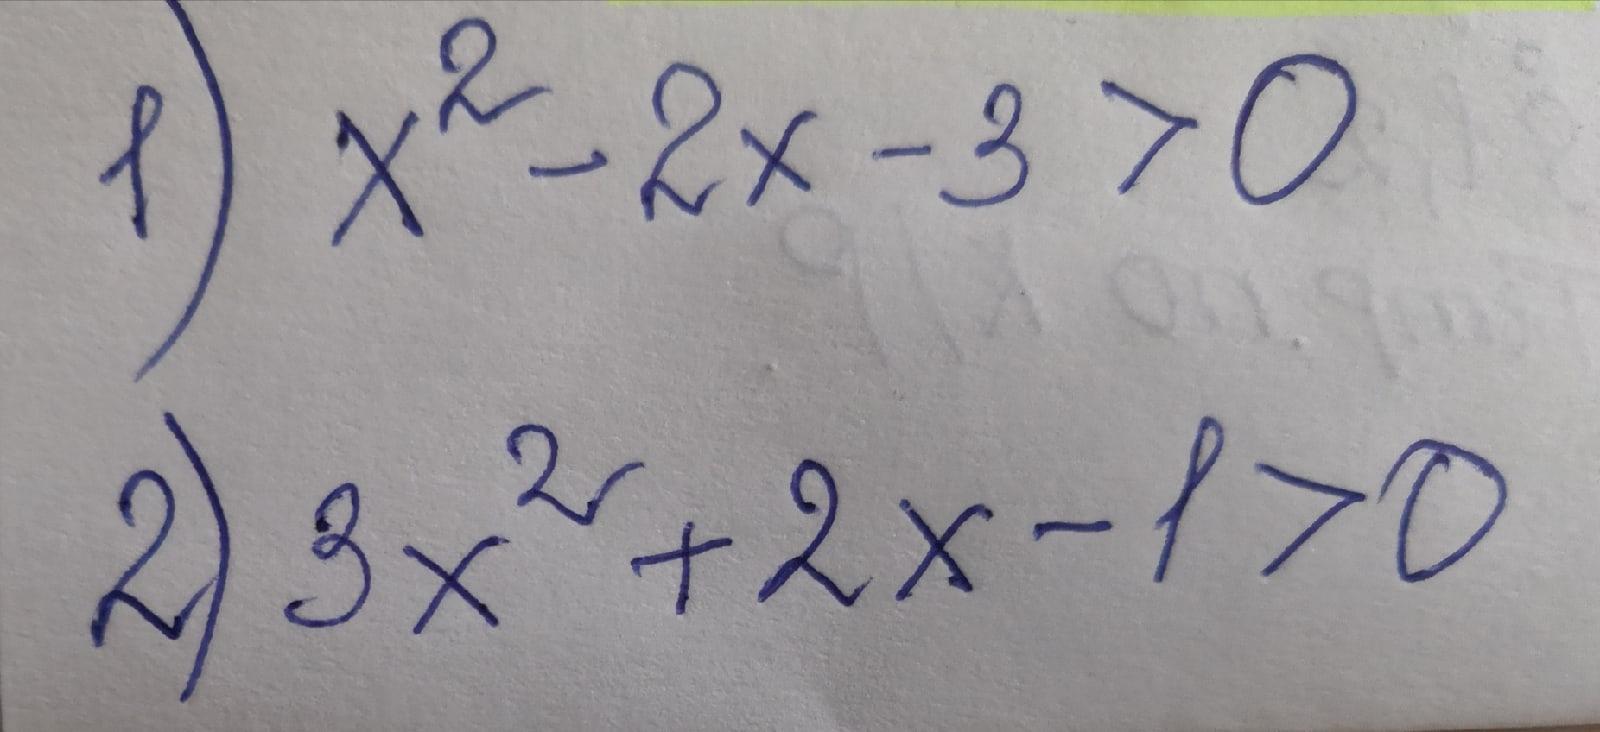 1) x² - 2x - 3 > 0
2) 3x² + 2x - 1 > 0